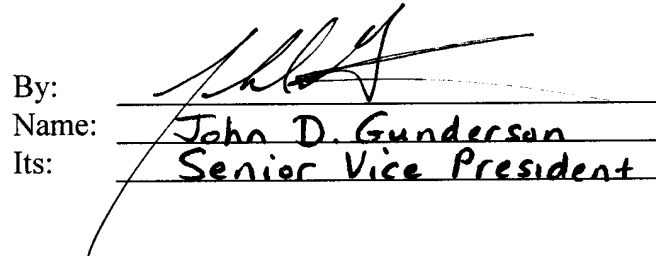 By:
Name: John D. Gunderson
Its: Senior Vice President